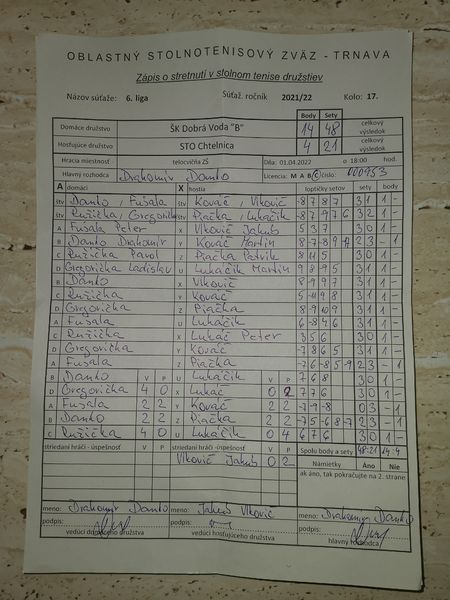 OBLASTNÝ STOLNOTENISOVÝ ZVÄZ - TRNAVA
Zápis o stretnutí v stolnom tenise družstiev
Názov súťaže: 6. liga Súťaž. ročník 2021/22 Kolo: 17.
Body Sety
Domáce družstvo ŠK Dobrá Voda "B" 14 48 celkový výsledok
Hosťujúce družstvo STO Chtelnica 4 21 celkový výsledok
Hracia miestnosť telocvičňa ZŠ Dňa: 01.04.2022 o 18:00 hod.
Hlavný rozhodca Drahomír Danko Licencia: M A B C číslo: 000953
A domáci X hostia loptičky setov sety body
štv Danko, Fusala štv Kovač, Vlkovič -8 7 8 7 3 1 1 -
štv Ružička, Gregorička štv Piačka, Lukáčik 3 2 1 -
A Fusala Peter X Vlkovič Jakub 5 3 7 3 0 1 -
B Danko Drahomír Y Kovač Martin 2 3 - 1
C Ružička Pavol Z Piačka Patrik 8 11 5 3 0 1 -
D Gregorička Ladislav U Lukáčik Martin 3 1 1 -
B Danko X Vlkovič 3 1 1 -
C Ružička Y Kovač 3 1 1 -
D Gregorička Z Piačka 3 1 1 -
A Fusala U Lukáčik 6 -8 4 6 3 1 1 -
C Ružička X Lukáč Peter 3 5 6 3 0 1 -
D Gregorička Y Kovač -7 8 6 5 3 1 1 -
A Fusala Z Piačka 2 3 - 1
B Danko V P U Lukáčik V P 7 6 8 3 0 1 -
D Gregorička 4 0 X Lukáč 0 2 7 7 6 3 0 1 -
A Fusala 2 2 Y Kovač 2 2 -7 -9 -8 0 3 - 1
B Danko 2 2 Z Piačka 2 2 2 3 - 1
C Ružička 4 0 U Lukáčik 0 4 6 7 6 3 0 1 -
striedaní hráči - úspešnosť V P striedaní hráči - úspešnosť V P Spolu body a sety 48:21 14:4
Vlkovič Jakub 0 2 Námietky Áno Nie
ak áno, tak pokračujte na 2. strane
meno: Drahomír Danko meno: Jakub Vlkovič meno: Drahomír Danko
podpis: podpis: podpis:
vedúci domáceho družstva vedúci hosťujúceho družstva hlavný rozhodca